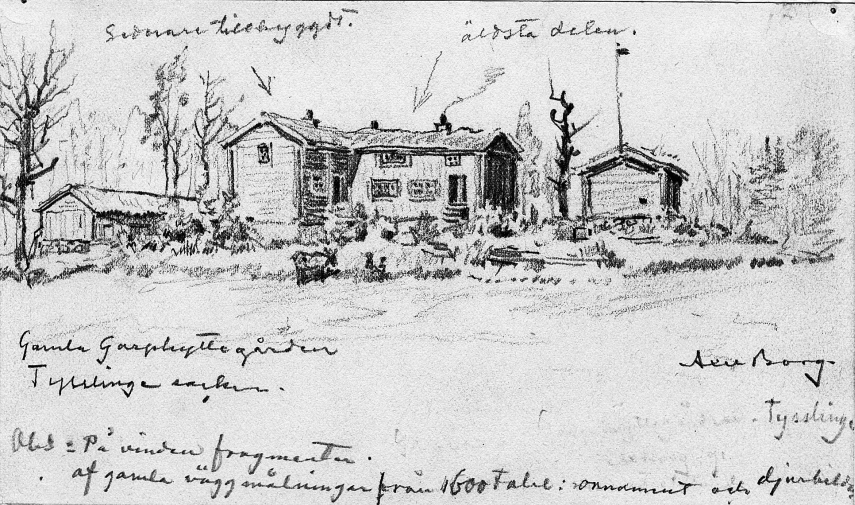 Senare tillbyggdt.
äldsta delen.
Gamla Garphyttegården
Tysslinge socken.
Axel Borg
Tysslinge
Obs: På vinden fragmenter.
af gamla väggmålningar från 1600 talet: ornnament och djurbilder